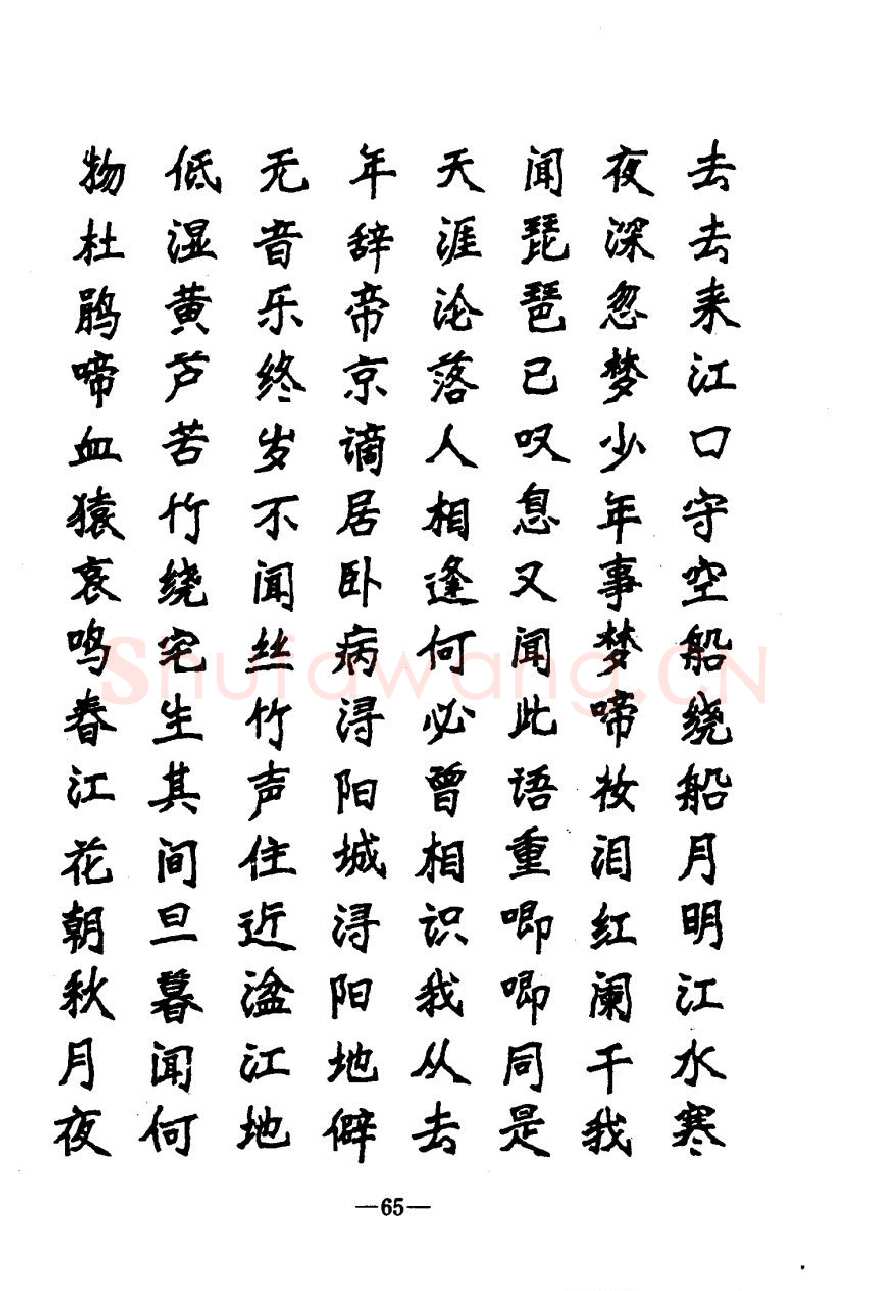 去去来江口守空船绕船月明江水寒
夜深忽梦少年事梦啼妆泪红阑干我
闻琵琶已叹息又闻此语重唧唧同是
天涯沦落人相逢何必曾相识我从去
年辞帝京谪居卧病浔阳城浔阳地僻
无音乐终岁不闻丝竹声住近湓江地
低湿黄芦苦竹绕宅生其间旦暮闻何
物杜鹃啼血猿哀鸣春江花朝秋月夜
Shufawang.CN
—65—